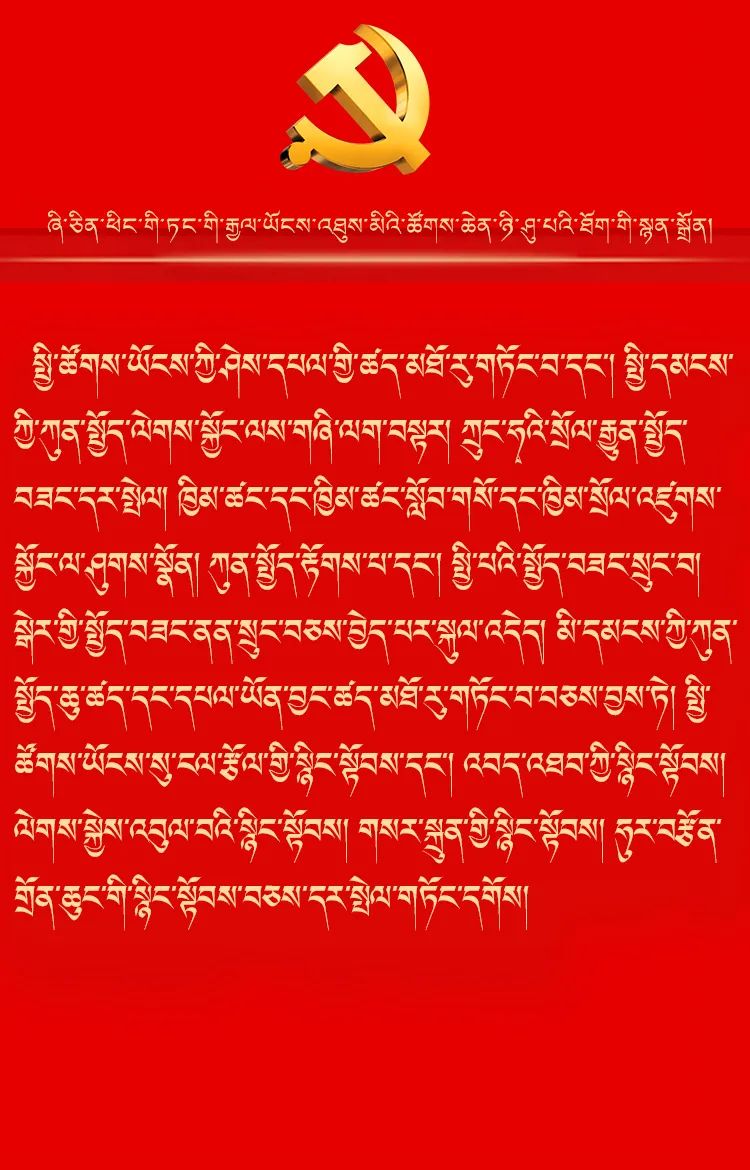 ཞི་ཅིན་ཕིང་གི་ཏང་གི་རྒྱལ་ཡོངས་འཐུས་མིའི་ཚོགས་ཆེན་ཉི་ཤུ་པའི་ཐོག་གི་སྙན་སྒྲོན།
སྤྱི་ཚོགས་ཡོངས་ཀྱི་ཤེས་དཔལ་གྱི་ཚད་མཐོ་རུ་གཏོང་བ་དང་། སྤྱི་དམངས་
ཀྱི་ཀུན་སྤྱོད་ལེགས་སྐྱོང་ལས་གཞི་ལག་བསྟར། ཀྲུང་ཧྭའི་སྲོལ་རྒྱུན་སྤྱོད་
བཟང་དར་སྤེལ། ཁྱིམ་ཚང་དང་ཁྱིམ་ཚང་སློབ་གསོ་དང་ཁྱིམ་སྲོལ་འཛུགས་
སྐྱོང་ལ་ཤུགས་སྣོན། ཀུན་སྤྱོད་རྟོགས་པ་དང་། སྤྱི་པའི་སྤྱོད་བཟང་སྲུང་བ།
སྒེར་གྱི་སྤྱོད་བཟང་ནན་སྲུང་བཅས་བྱེད་པར་སྐུལ་འདེད། མི་དམངས་ཀྱི་ཀུན་
སྤྱོད་ཆུ་ཚད་དང་དཔལ་ཡོན་བྱང་ཚད་མཐོ་རུ་གཏོང་བ་བཅས་བྱས་ཏེ། སྤྱི་
ཚོགས་ཡོངས་སུ་ངལ་རྩོལ་གྱི་སྙིང་སྟོབས་དང་། འབད་འཐབ་ཀྱི་སྙིང་སྟོབས།
ལེགས་སྐྱེས་འབུལ་བའི་སྙིང་སྟོབས། གསར་སྐྲུན་གྱི་སྙིང་སྟོབས། ཧུར་བརྩོན་
གྲོན་ཆུང་གི་སྙིང་སྟོབས་བཅས་དར་སྤེལ་གཏོང་དགོས།